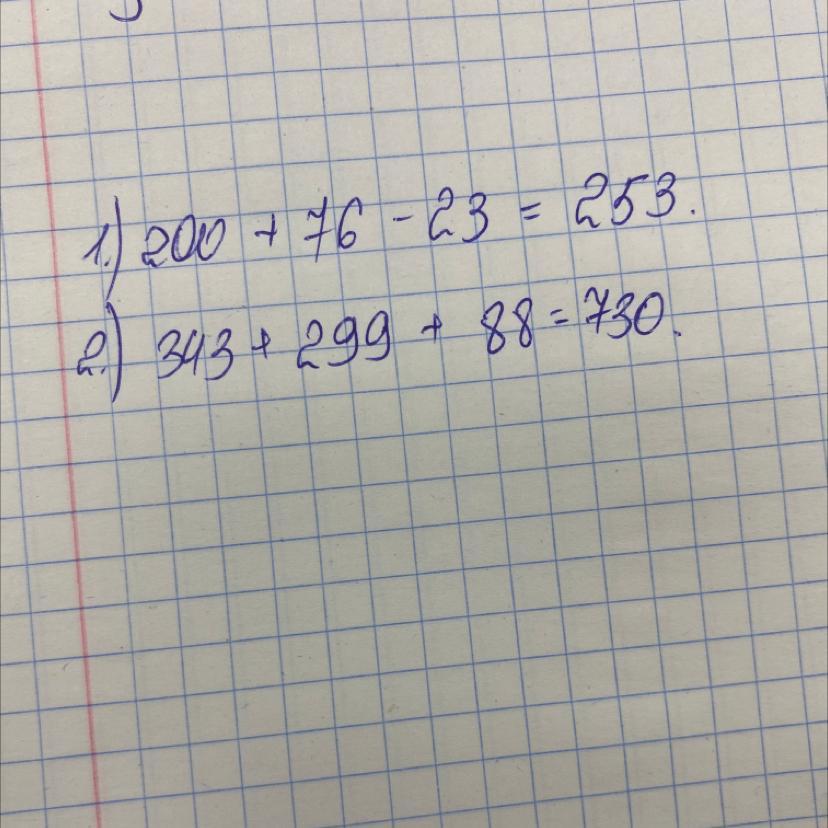 1.) 200 + 76 - 23 = 253.
2.) 343 + 299 + 88 = 730.